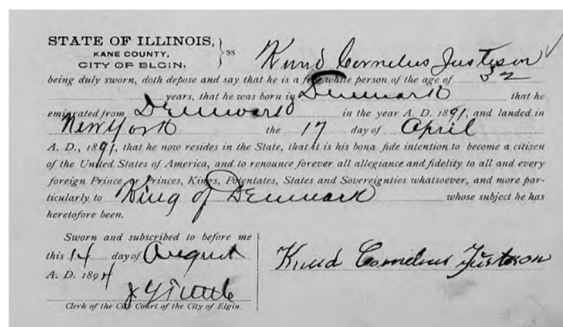 STATE OF ILLINOIS,
KANE COUNTY,
CITY OF ELGIN, } ss Knud Cornelius Justeson
being duly sworn, doth depose and say that he is a free white person of the age of 32
years, that he was born in Denmark that he
emigrated from Denmark in the year A. D. 1891, and landed in
New York the 17 day of April
A. D., 1891, that he now resides in the State, that it is his bona fide intention to become a citizen
of the United States of America, and to renounce forever all allegiance and fidelity to all and every
foreign Prince or Princes, Kings, Potentates, States and Sovereignties whatsoever, and more par-
ticularly to King of Denmark whose subject he has
heretofore been.
Sworn and subscribed to before me
this 14 day of August
A. D. 1894
Knud Cornelius Justeson
Clerk of the City Court of the City of Elgin.